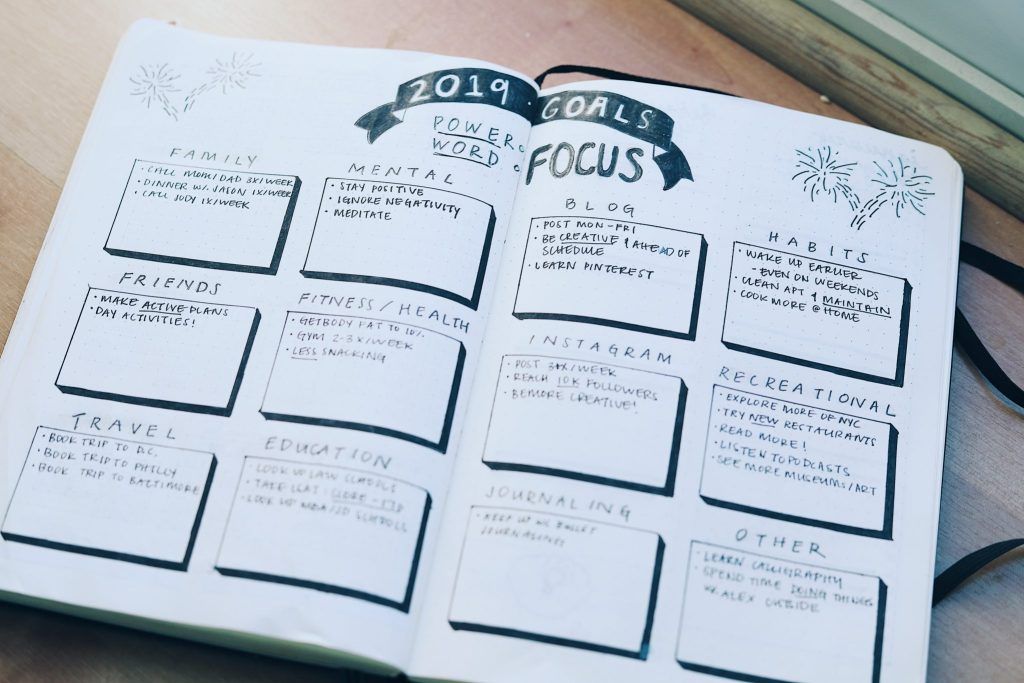 2019 · GOALS
POWER
WORD
FOCUS
FAMILY
· CALL MOM/DAD 3X/WEEK
· DINNER W/ JASON 1X/WEEK
· CALL JODY 1X/WEEK
MENTAL
· STAY POSITIVE
· IGNORE NEGATIVITY
· MEDITATE
FRIENDS
· MAKE ACTIVE PLANS
· DAY ACTIVITIES!
FITNESS/HEALTH
· GET BODY FAT TO 10%
· GYM 2-3X/WEEK
· LESS SNACKING
TRAVEL
· BOOK TRIP TO D.C.
· BOOK TRIP TO PHILLY
· BOOK TRIP TO BALTIMORE
EDUCATION
· LOOK UP LAW SCHOOLS
· TAKE LSAT
· LOOK UP MBA/JD SCHOOLS
BLOG
· POST MON-FRI
· BE CREATIVE & AHEAD OF
SCHEDULE
· LEARN PINTEREST
HABITS
· WAKE UP EARLIER
- EVEN ON WEEKENDS
· CLEAN APT & MAINTAIN
· COOK MORE @ HOME
INSTAGRAM
· POST X/WEEK
· REACH 10K FOLLOWERS
· BE MORE CREATIVE!
RECREATIONAL
· EXPLORE MORE OF NYC
· TRY NEW RESTAURANTS
· READ MORE!
· LISTEN TO PODCASTS
· SEE MORE MUSEUMS/ART
JOURNALING
· KEEP UP W/ BULLET
JOURNALING
OTHER
· LEARN CALLIGRAPHY
· SPEND TIME DOING THINGS
W/ ALEX OUTSIDE